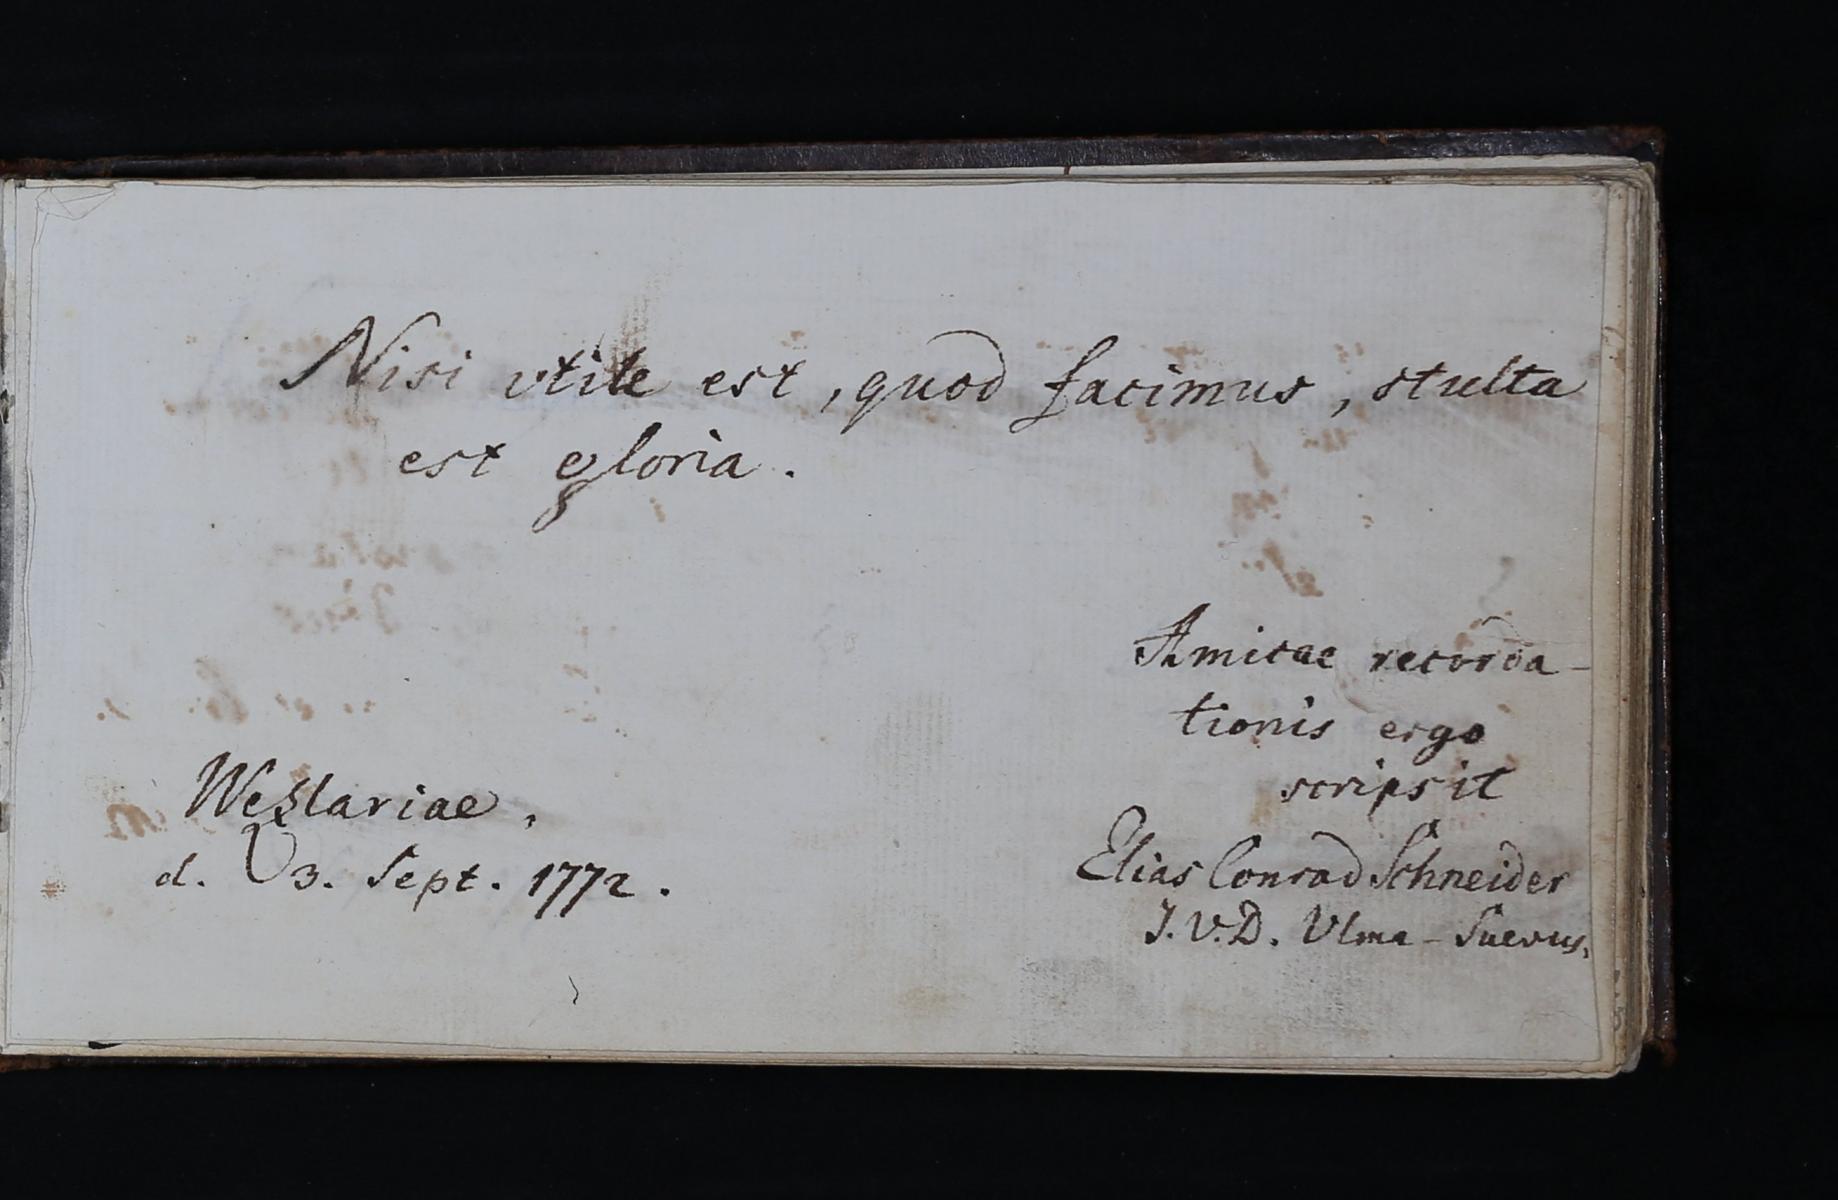 Nisi vtile est, quod facimus, stulta
est gloria.
Amicae recorda-
tionis ergo
scripsit
Wezlariae,
d. 3. Sept. 1772.
Elias Conrad Schneider
J. V. D. Vlma-Suevus.